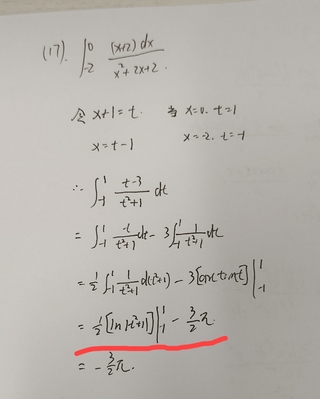 (17). ∫_{-2}^{0} (x+2)dx / (x²+2x+2).
令 x+1=t. 当 x=0, t=1
x=t-1 x=-2, t=-1
∴ ∫_{-1}^{1} (t-3)/(t²+1) dt
= ∫_{-1}^{1} t/(t²+1) dt - 3∫_{-1}^{1} 1/(t²+1) dt
= ½ ∫_{-1}^{1} 1/(t²+1) d(t²+1) - 3[arctant]|_{-1}^{1}
= ½ [ln|t²+1|]|_{-1}^{1} - 3/2 π.
= -3/2 π.